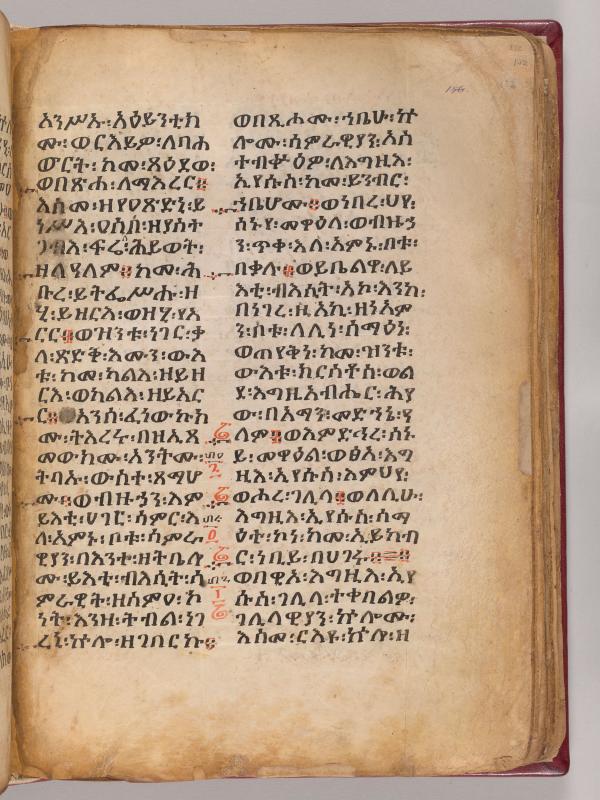 አንሥኡ፡አዕይንቲክ
ሙ፡ወርእይዎ፡ለባሕ
ወርት፡ከመ፡ጸዕደወ፡
ወበጽሐ፡ለማእረር።
እስመ፡ዘየዐጽድኒ፡ይ
ነሥእ፡ዐስቦ፡ዘያስት
ጋብእ፡ፍሬ፡ሕይወት፡
ዘለዓለም።ከመ፡ሕ
ቡረ፡ይትፌሥሑ፡ዘ
ሂ፡ይዘርእ፡ወዘሂ፡የአ
ርር።ወዝንቱ፡ነገር፡ቃ
ለ፡ጽድቅ፡እሙን፡ውእ
ቱ፡ከመ፡ካልእ፡ዘይዘ
ርእ፡ወካልእ፡ዘይአር
ር።አንሰ፡ፈነውኩክ
ሙ፡ትእረሩ፡በዘኢጻ
መውክሙ፡አንትሙ፡
ትባኡ፡ውስተ፡ጻማሆ
ሙ።ወብዙኃን፡እም
ይእቲ፡ሀገር፡ሰምር፡እ
ለ፡አምኑ፡ቦቱ፡ሰምራ
ዊያን፡በእንተ፡ዘትቤሎ
ሙ፡ይእቲ፡ብእሲት፡ሳ
ምራዊት፡ዘስምዐ፡ኮ
ነት፡እንዘ፡ትብል፡ነገ
ረኒ፡ኵሎ፡ዘገበርኩ።
146
ወበጺሖሙ፡ኀቤሁ፡ኵ
ሎሙ፡ሰምራዊያን፡አስ
ተብቍዕዎ፡ለእግዚእ፡
ኢየሱስ፡ከመ፡ይንብር፡
ኀቤሆሙ።ወነበረ፡ህየ፡
ሰኑየ፡መዋዕለ፡ወብዙኃ
ን፡ጥቀ፡እለ፡አምኑ፡ቦቱ፡
በቃሉ።ወይቤልዋ፡ለይ
እቲ፡ብእሲት፡አኮ፡እንከ፡
በነገረ፡ዚአኪ፡ዘነአም
ን፡ቦቱ፡ለሊነ፡ሰማዕነ፡
ወጠየቅነ፡ከመ፡ዝንቱ፡
ውእቱ፡ክርስቶስ፡ወል
ደ፡እግዚአብሔር፡ሕያ
ው፡በአማን፡መድኀኔ፡ዓ
ለም።ወእምድኅረ፡ሰኑ
ይ፡መዋዕል፡ወፅአ፡እግ
ዚእ፡ኢየሱስ፡እምህየ፡
ወሖረ፡ገሊላ።ወለሊሁ፡
እግዚእ፡ኢየሱስ፡ሰማ
ዕተ፡ኮነ፡ከመ፡ኢይከብ
ር፡ነቢይ፡በሀገሩ።
ወበዊኦ፡እግዚእ፡ኢየ
ሱስ፡ገሊላ፡ተቀበልዎ፡
ገሊላዊያን፡ኵሎሙ፡
እስመ፡ርእዩ፡ኵሎ፡ዘ